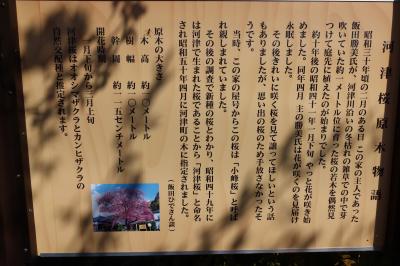 河津桜原木物語
昭和三十年頃の二月のある日 この家の主人であった
飯田勝美氏が、河津川沿いの冬枯れの雑草の中で芽
吹いていた約一メートル位に育った桜の若木を偶然見
つけて庭先に植えたのが始まりでした。
約十年後の昭和四十一年一月下旬 やっと花が咲き始
めました。同年四月 主の勝美氏は花が咲くのを見届け
永眠しました。
その後きれいに咲く桜を見て譲ってほしいという話
もありましたが、思い出の桜のため手放さなかったそ
うです。
当時、この家の屋号からこの桜は「小峰桜」と呼ば
れ親しまれていました。
その後の調査で新種の桜とわかり、昭和四十九年に
は河津で生まれた桜であることから「河津桜」と命名
され昭和五十年四月に河津町の木に指定されました。
(飯田ひでさん談)
原木の大きさ
木高 約一〇メートル
樹幅 約一〇メートル
幹周 約一一五センチメートル
開花時期
月上旬から三月上旬
河津桜はオオシマザクラとカンヒザクラの
自然交配種と推定されます。